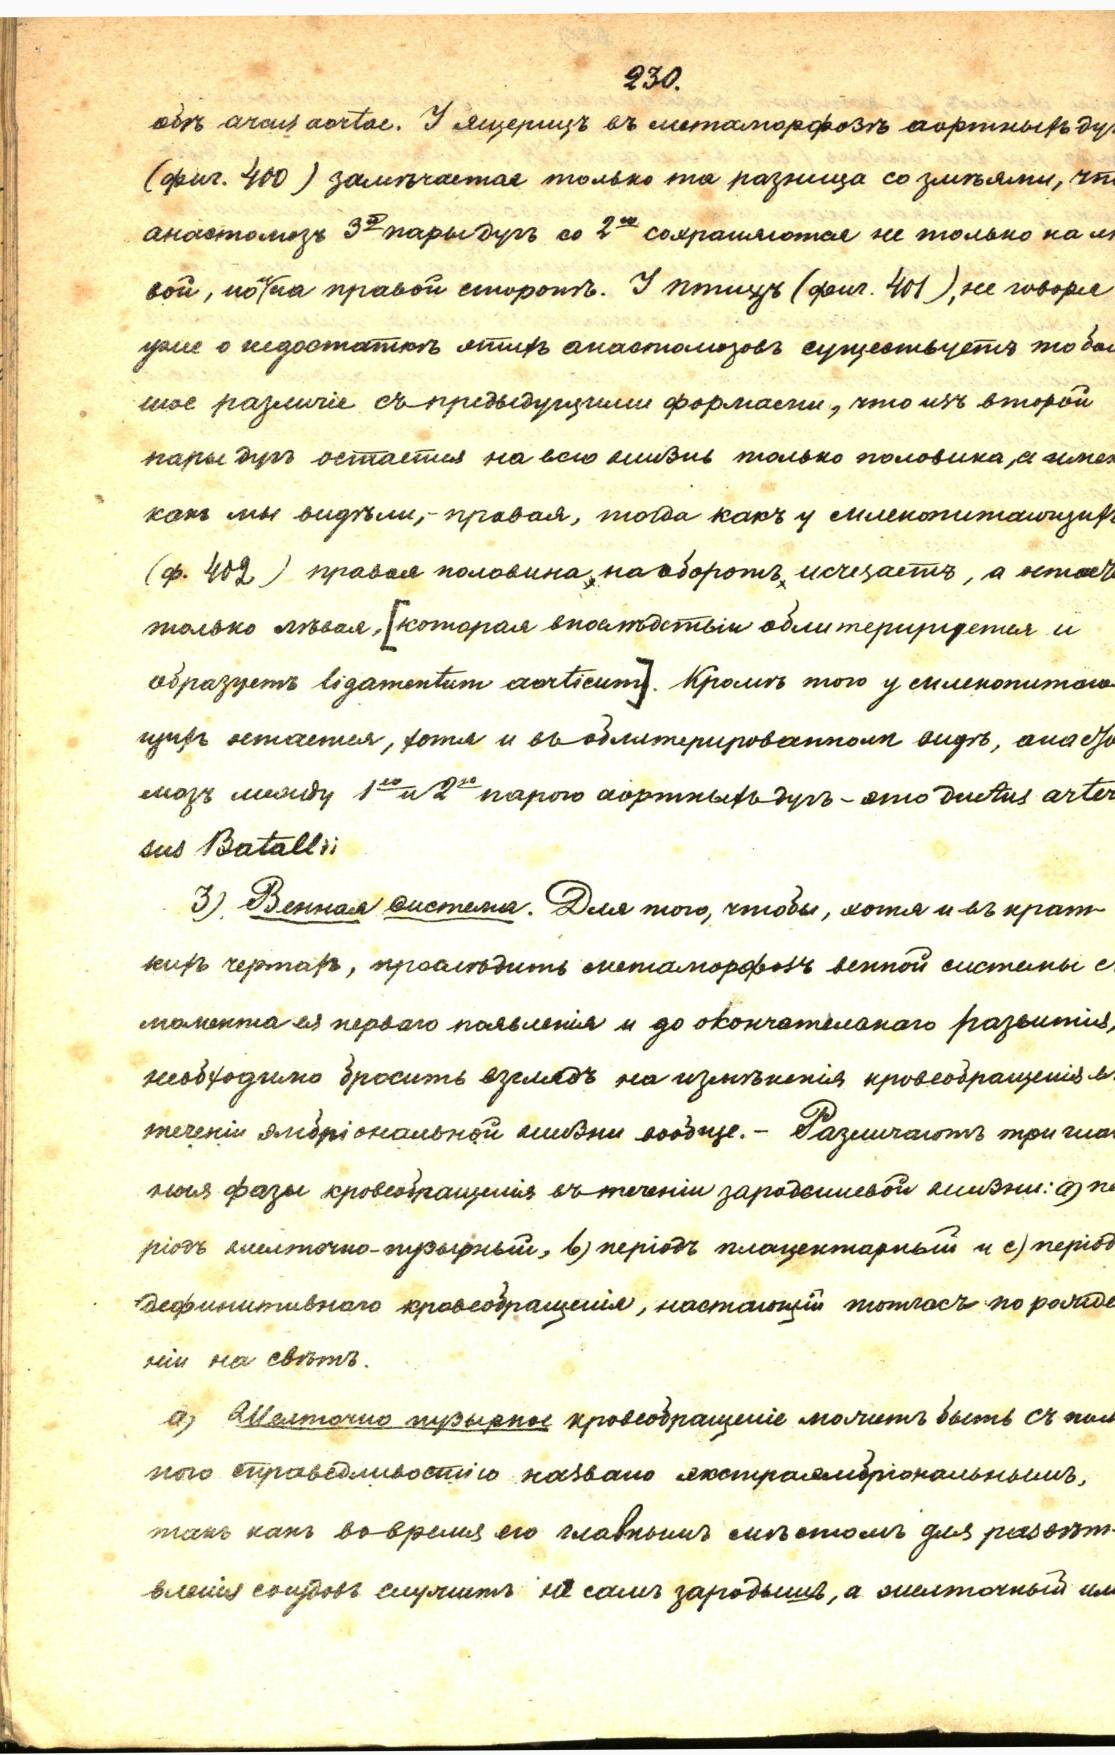 230.
обѣ arcus aortae. У ящерицъ въ метаморфозѣ аортныхъ ду
(фиг. 400) замѣчается только та разница со змѣями, что
анастомозъ 3й пары дугъ со 2ою сохраняются не только на лѣ
вой, но и на правой сторонѣ. У птицъ (фиг. 401), не говоря
уже о недостаткѣ этихъ анастомозовъ существуетъ то бол
шое различіе съ предыдущими формами, что изъ второй
пары дугъ остается на всю жизнь только половина, а имен
какъ мы видѣли, – правая, тогда какъ у млекопитающихъ
(ф. 402) правая половина, наоборотъ, исчезаетъ, а остает
только лѣвая, [которая впослѣдствіи облитерируется и
образуетъ ligamentum aorticum]. Кромѣ того у млекопитаю-
щихъ остается, хотя и въ облитерированномъ видѣ, анасто
мозъ между 1ою и 2ою парою аортныхъ дугъ – это ductus arter
sus Batallii
3) Венная система. Для того, чтобы, хотя и въ крат-
кихъ чертахъ, прослѣдить метаморфозъ венной системы с
момента ея перваго появленія и до окончательнаго развитія,
необходимо бросить взглядъ на измѣненія кровеобращенія въ
теченіи эмбріональной жизни вообще. – Различаютъ три глав
ныя фазы кровеобращенія въ теченіи зародышевой жизни: a) пе
ріодъ желточно-пузырный, b) періодъ плацентарный и c) період
дефинитивнаго кровеобращенія, настающій тотчасъ по рожде
ніи на свѣтъ.
a) Желточно пузырное кровеобращеніе можетъ быть съ пол
ною справедливостію названо экстраэмбріональнымъ,
такъ какъ во время его главнымъ мѣстомъ для развѣт-
вленія сосудовъ служитъ не самъ зародышъ, а желточный или